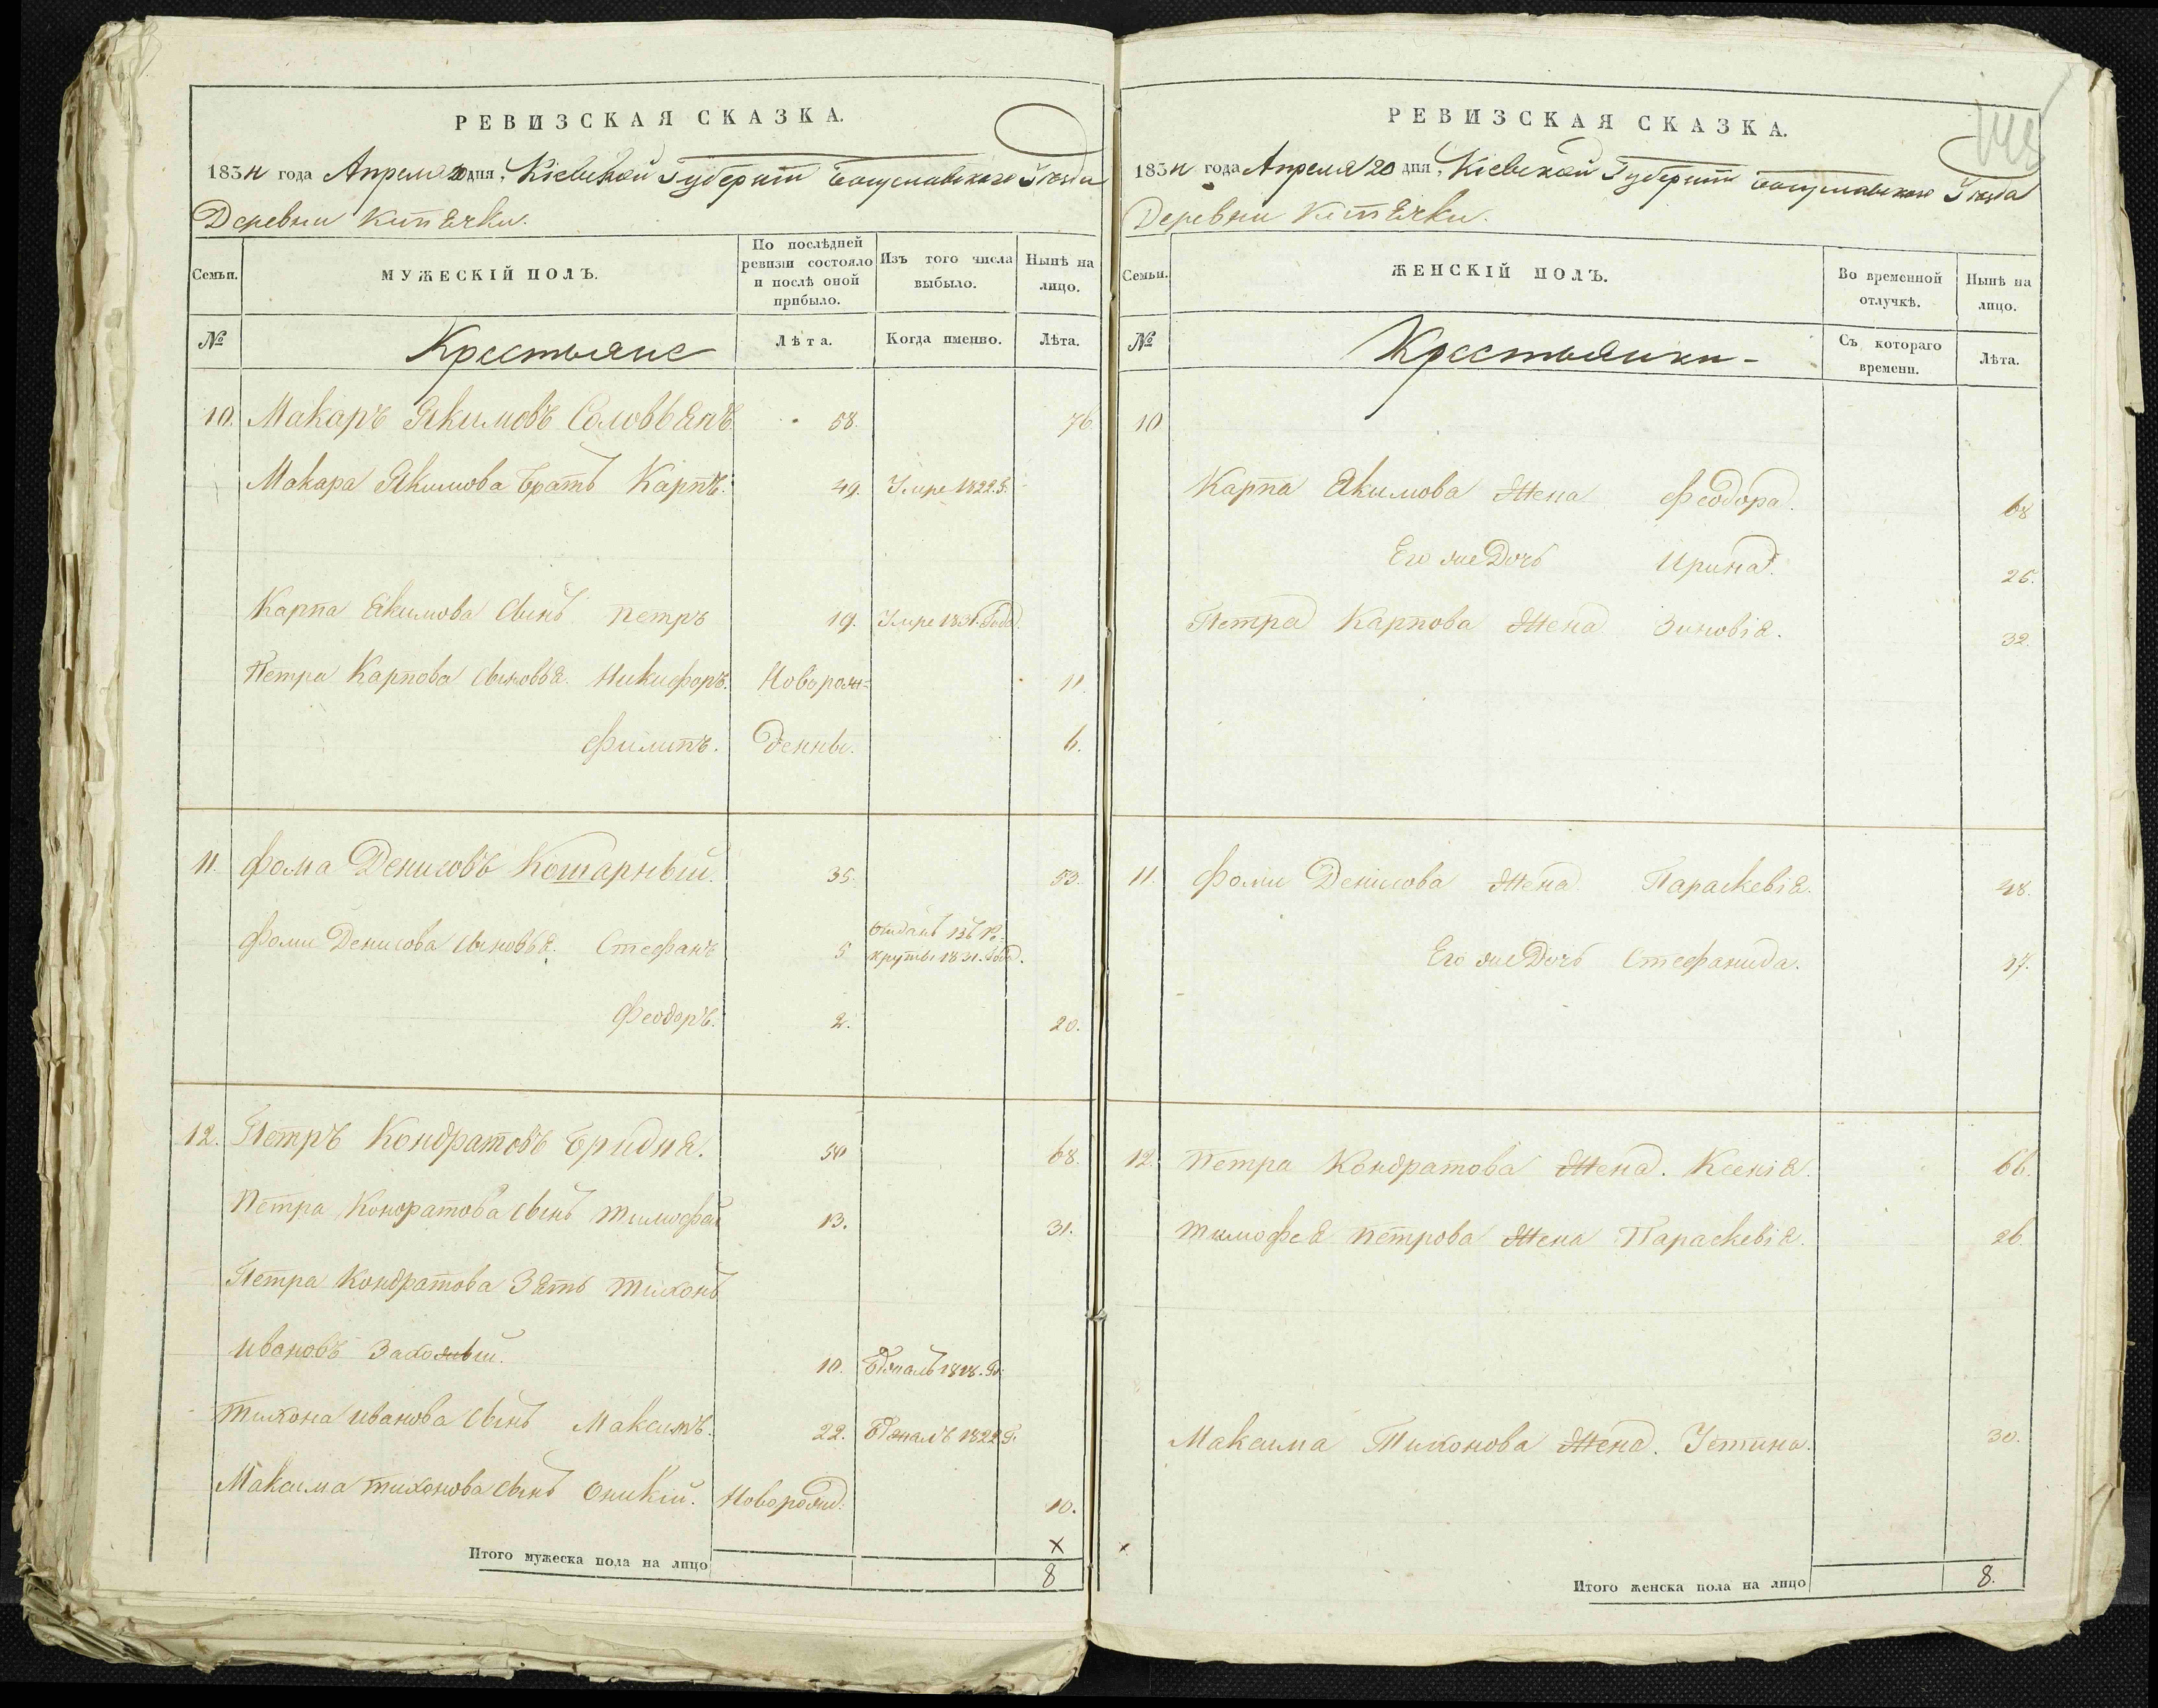 РЕВИЗСКАЯ СКАЗКА.
1834 года Апреля 20 дня, Кіевской Губерніи Богуславскаго Уезда
Деревни Кипячки.
Семьи.
МУЖЕСКІЙ ПОЛЪ.
По послѣдней ревизіи состояло и послѣ оной прибыло.
Изъ того числа выбыло.
Нынѣ на лицо.
№
Крестьяне
Лѣта.
Когда именно.
Лѣта.
10. Макаръ Якимовъ Соловьянъ 58. 76
Макара Якимова братъ Карпъ. 49. Умре 1822. г.
Карпа Якимова сынъ Петръ 19. Умре 1831. Года.
Петра Карпова сыновья. Никифоръ. Новорож= 11.
Филипъ. денны. 6.
11. Фома Денисовъ Кошарный. 35. 53.
Фомы Денисова сыновья. Стефанъ 5 Отданъ въ Ре-
круты 1831. Года.
Феодоръ. 2. 20.
12. Петръ Кондратовъ Бридня. 50 68.
Петра Кондратова сынъ Тимофей 13. 31.
Петра Кондратова Зять Тихонъ
Ивановъ 10. Бежалъ 1818. Го.
Тихона Иванова сынъ Максимъ. 22. Бежалъ 1822 г.
Максима Тихонова сынъ Оникій. Новорожд: 10.
×
Итого мужеска пола на лицо 8
РЕВИЗСКАЯ СКАЗКА.
1834 года Апреля 20 дня, Кіевской Губерніи Богуславскаго Уезда
Деревни Кипячки.
Семьи.
ЖЕНСКІЙ ПОЛЪ.
Во временной отлучкѣ.
Нынѣ на лицо.
№
Крестьянки-
Съ котораго времени.
Лѣта.
10
Карпа Якимова Жена Феодора. 68
Его же Дочь Ирина. 26.
Петра Карпова Жена Зиновія. 32.
11. Фомы Денисова Жена Параскевія. 48.
Его же Дочь Стефанида. 17.
12. Петра Кондратова Жена. Ксенія. 66.
Тимофея Петрова Жена Параскевія. 26.
Максима Тихонова Жена. Устина. 30.
×
Итого женска пола на лицо 8.